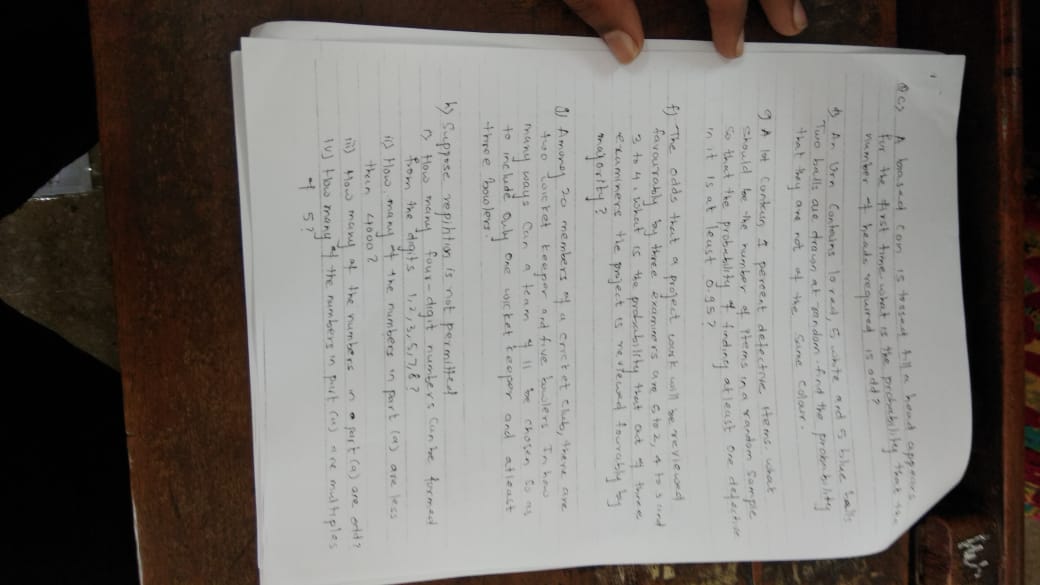 Q c) A biased coin is tossed till a head appears
for the first time. what is the probability that the
number of heads required is odd?
d) An Urn Contains 10 red, 5 white and 5 blue balls
Two balls are drawn at random. find the probability
that they are not of the Same Colour.
A lot Contain 1 percent defective items. what
should be the number of items in a random Sample
so that the probability of finding atleast One defective
in it is at least 0.95?
f) The odds that a project work will be reviewed
favourably by three examiners are 5 to 2, 4 to 3 and
3 to 4. What is the probability that out of three
examiners the project is reviewed by
majority?
g) Among 20 members of a cricket club, there are
two wicket keeper and five bowlers. In how
many ways Can a team of 11 be chosen So as
to include Only One wicket keeper and atleast
three bowlers.
h) Suppose repihtion is not permitted
i) How many four-digit numbers Can be formed
from the digits 1,2,3,5,7,8?
ii) How many of the numbers in part (a) are less
than 4000?
iii) How many of the numbers in part (a) are odd?
iv) How many of the numbers in part (a) are multiples
of 5?